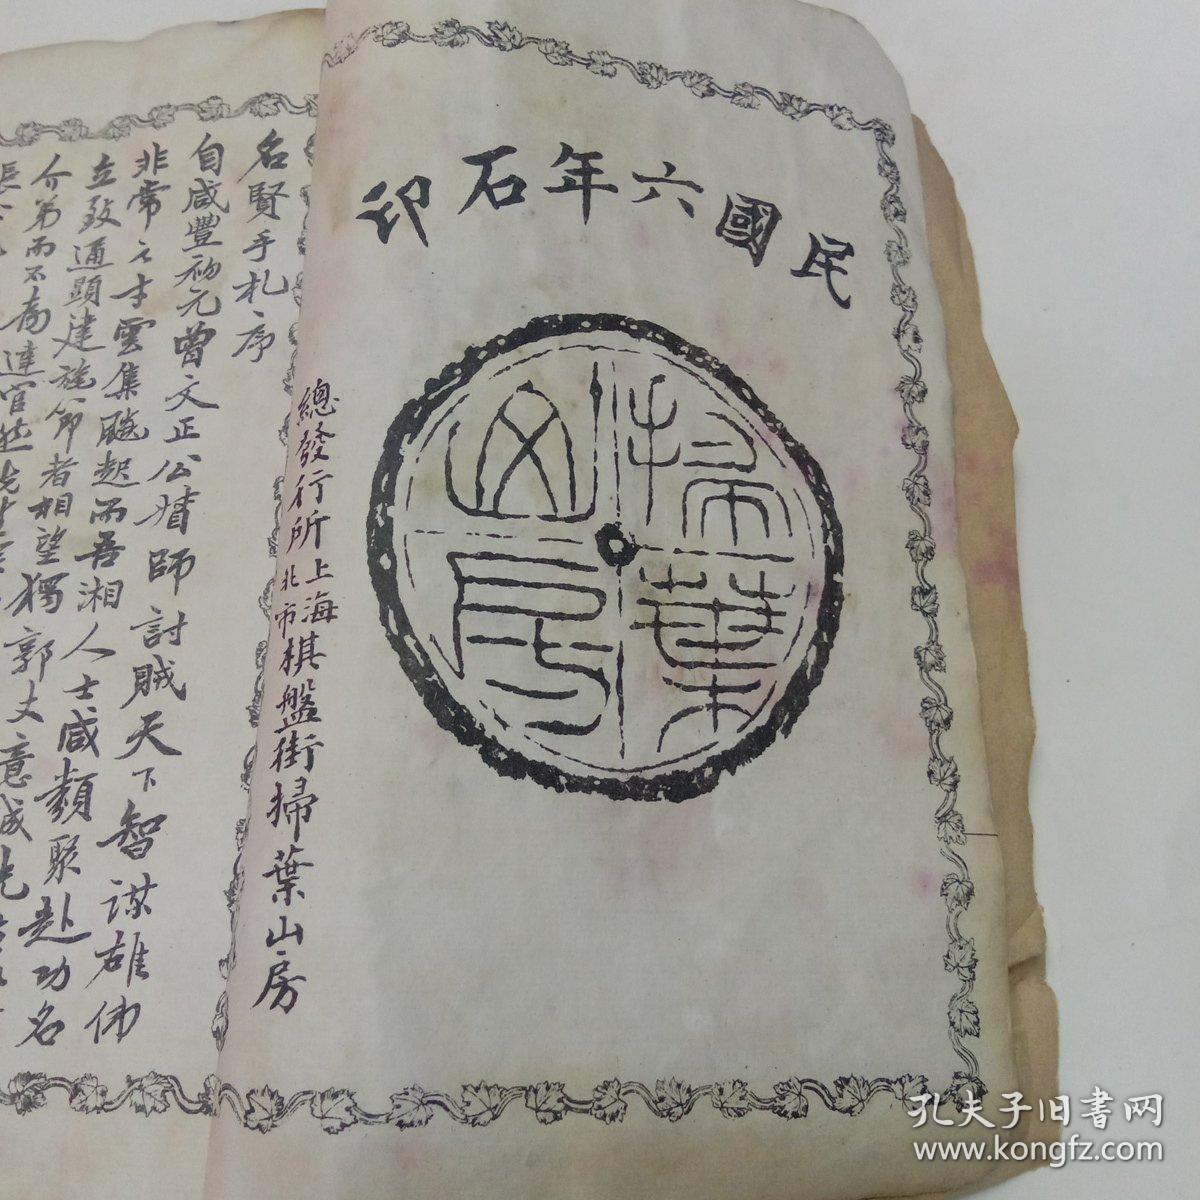 民國六年石印
掃葉山房
總發行所上海北市棋盤街掃葉山房
名賢手札序
自咸豐初元曾文正公督師討賊天下智謀雄偉
非常之才雲集飈起而吾湘人士咸類聚赴功名
立致通顯建旄節者相望獨郭丈意成先
介弟而不為達官然先生
孔夫子旧書网
www.kongfz.com